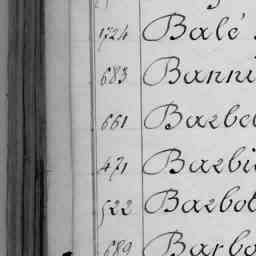 1724 Balé
683 Banni
661 Barbe
471 Barbi
522 Barbot
689 Barbo